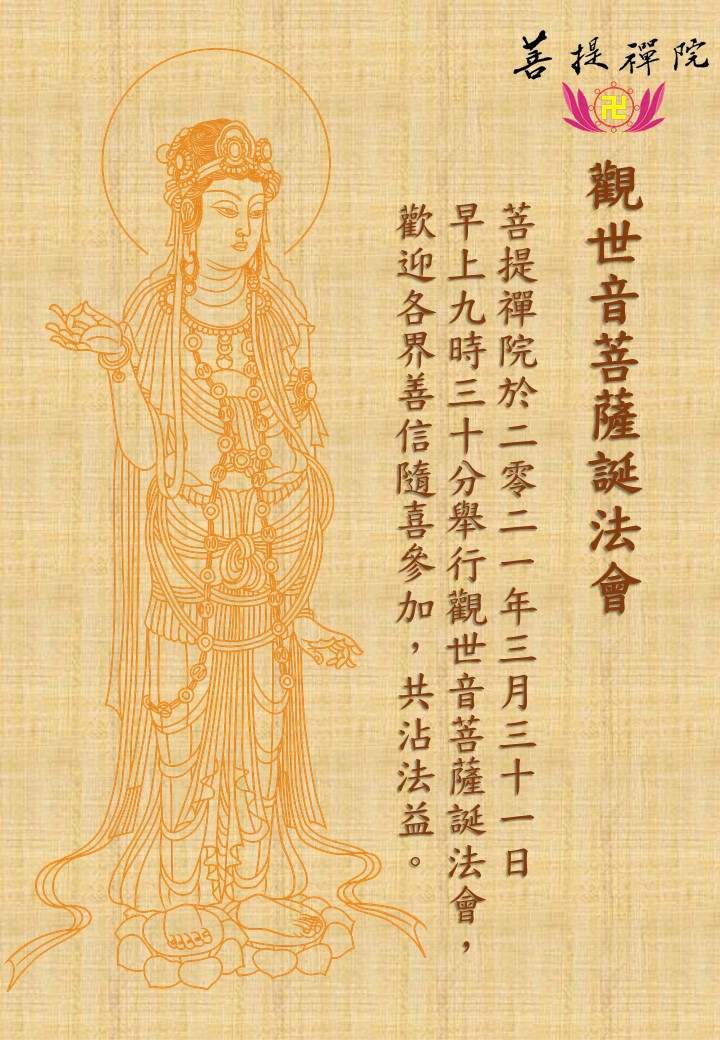 菩提禪院
卍
觀世音菩薩誕法會
菩提禪院於二零二一年三月三十一日
早上九時三十分舉行觀世音菩薩誕法會，
歡迎各界善信隨喜參加，共沾法益。